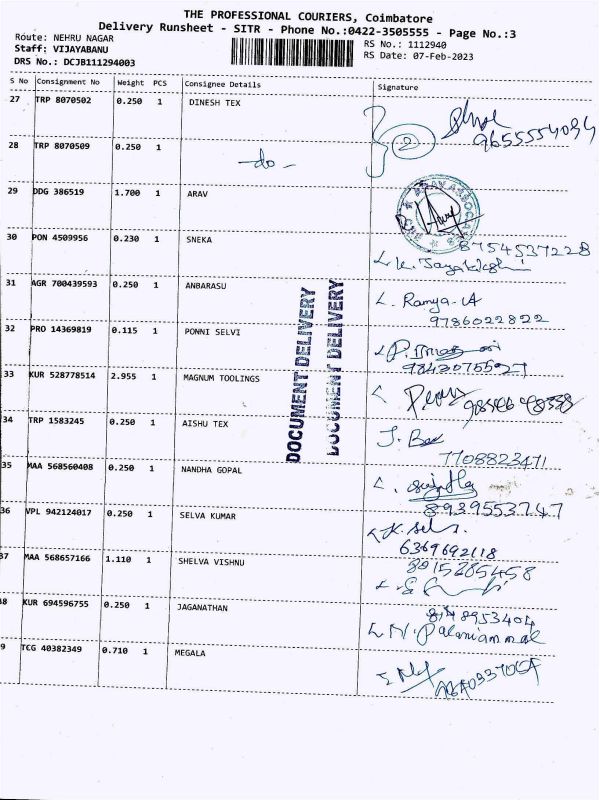 THE PROFESSIONAL COURIERS, Coimbatore
Delivery Runsheet - SITR - Phone No.:0422-3505555 - Page No.:3
Route: NEHRU NAGAR
RS No.: 1112940
Staff: VIJAYABANU
RS Date: 07-Feb-2023
DRS No.: DCJB111294003
S No Consignment No Weight PCS Consignee Details Signature
27 TRP 8070502 0.250 1 DINESH TEX
2 9655554094
28 TRP 8070509 0.250 1 -do-
29 DDG 386519 1.700 1 ARAV
8754537228
30 PON 4509956 0.230 1 SNEKA
31 AGR 700439593 0.250 1 ANBARASU L. Ramya-A
9786022822
32 PRO 14369819 0.115 1 PONNI SELVI
33 KUR 528778514 2.955 1 MAGNUM TOOLINGS
34 TRP 1583245 0.250 1 AISHU TEX
7708823471
35 MAA 568560408 0.250 1 NANDHA GOPAL
8939553747
36 VPL 942124017 0.250 1 SELVA KUMAR
6369692118
37 MAA 568657166 1.110 1 SHELVA VISHNU 8015285458
38 KUR 694596755 0.250 1 JAGANATHAN
N. Palaniammal
9 TCG 40382349 0.710 1 MEGALA
DOCUMENT DELIVERY
DOCUMENT DELIVERY